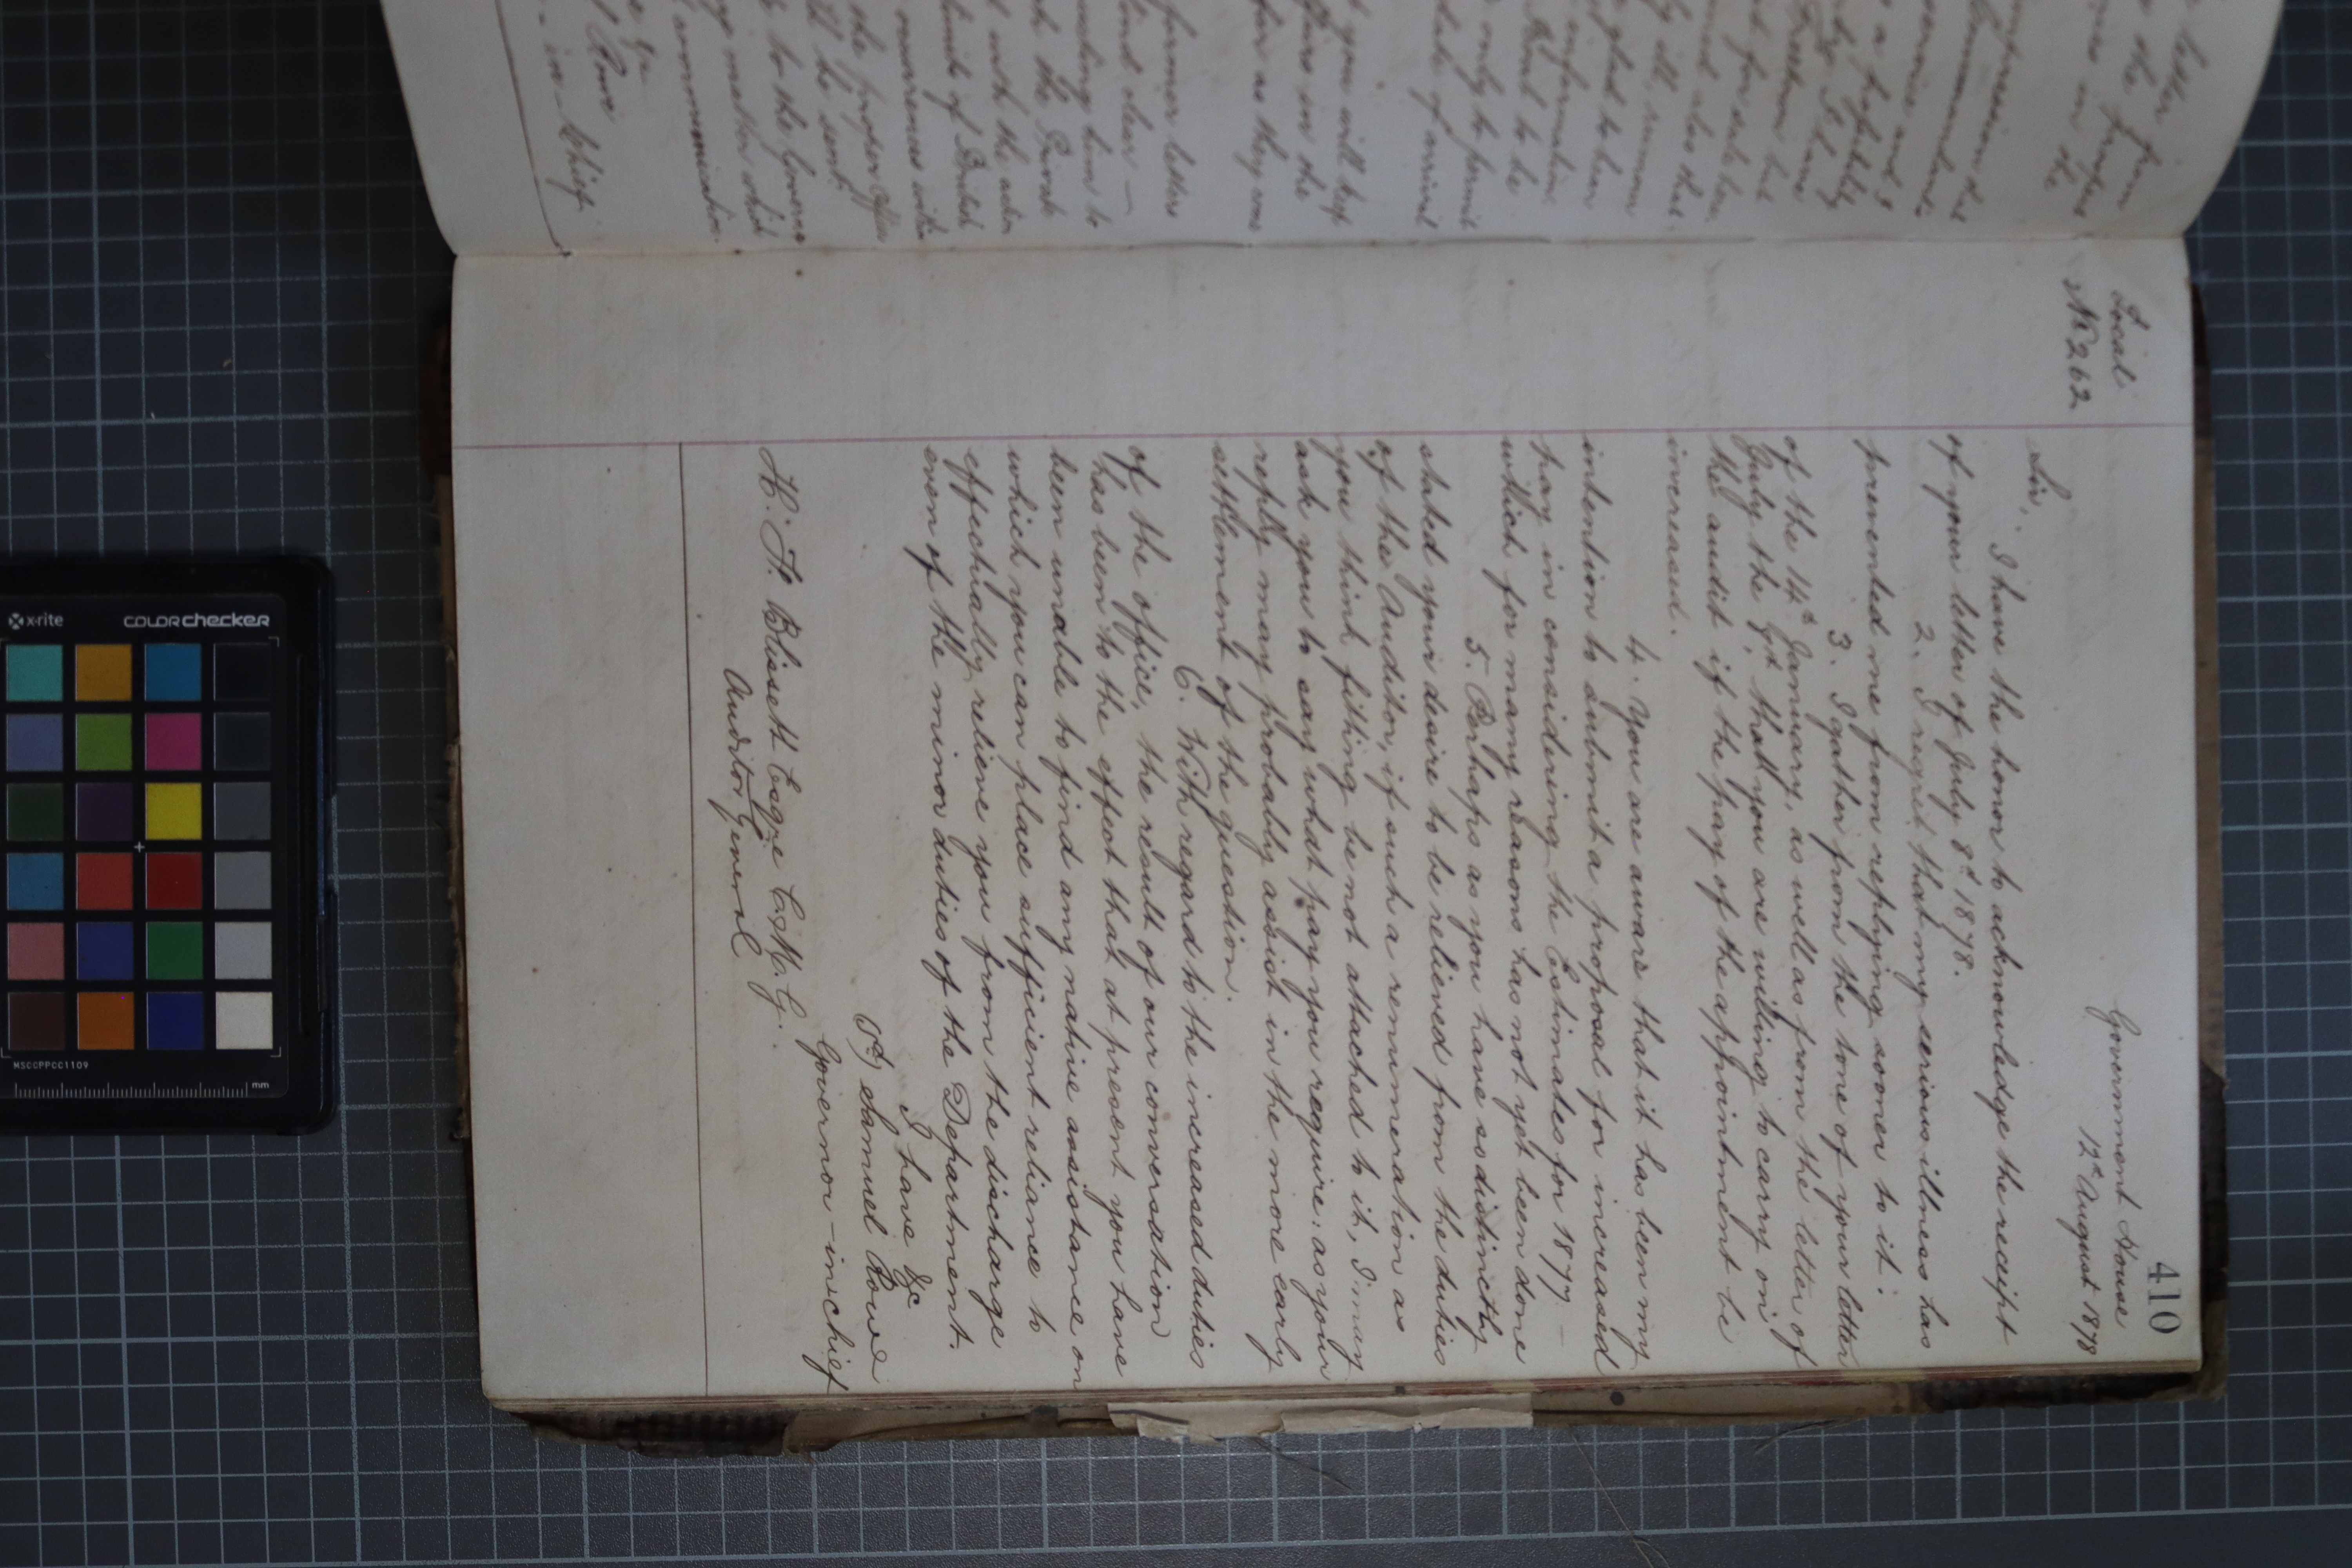 410
Local
No 262
Government House
12th August 1878
Sir,
I have the honor to acknowledge the receipt
of your letter of July 8th 1878.
2. I regret that my serious illness has
prevented me from replying sooner to it.
3. I gather from the tone of your letter
of the 14th January, as well as from the letter of
July the 8th that you are willing to carry on
the audit if the pay of the appointment be
increased.
4. You are aware that it has been my
intention to submit a proposal for increased
pay in considering the Estimates for 1877 —
which for many reasons has not yet been done
5. Perhaps as you have so distinctly
stated your desire to be relieved from the duties
of the Auditor, if such a remuneration as
you think fitting be not attached to it, I may
ask you to say what pay you require: as your
reply may probably assist in the more early
settlement of the question.
6. With regard to the increased duties
of the office, the result of our conversation
has been to the effect that at present you have
been unable to find any native assistance on
which you can place sufficient reliance to
effectually relieve you from the discharge
even of the minor duties of the Department.
I have &c
(Sd) Samuel Rowe
Governor-in-Chief
H. F. Blissett Esqre C.M.G.
Auditor General
letter from
the
in the
impression that
a
glad to hear
information
to be
only to permit
date of arrival
you will keep
in the
as they come
former letters
clear —
to
with the
of British
the proper
be sent
to the Governor
matter which
communication.
&c
Rowe
- in - Chief.
x-rite
colorchecker
MSCCPPCC1109
mm